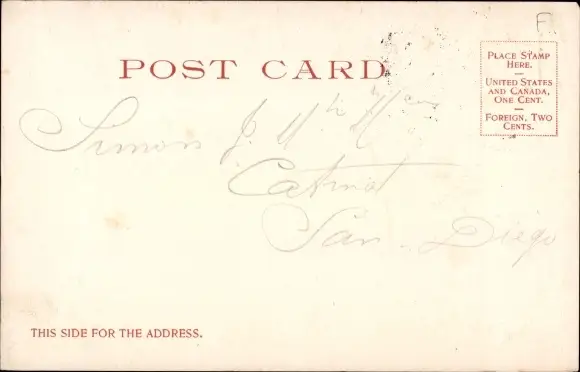 F
POST CARD
PLACE STAMP
HERE.
UNITED STATES
AND CANADA,
ONE CENT.
FOREIGN, TWO
CENTS.
Simon J.
San Diego
THIS SIDE FOR THE ADDRESS.